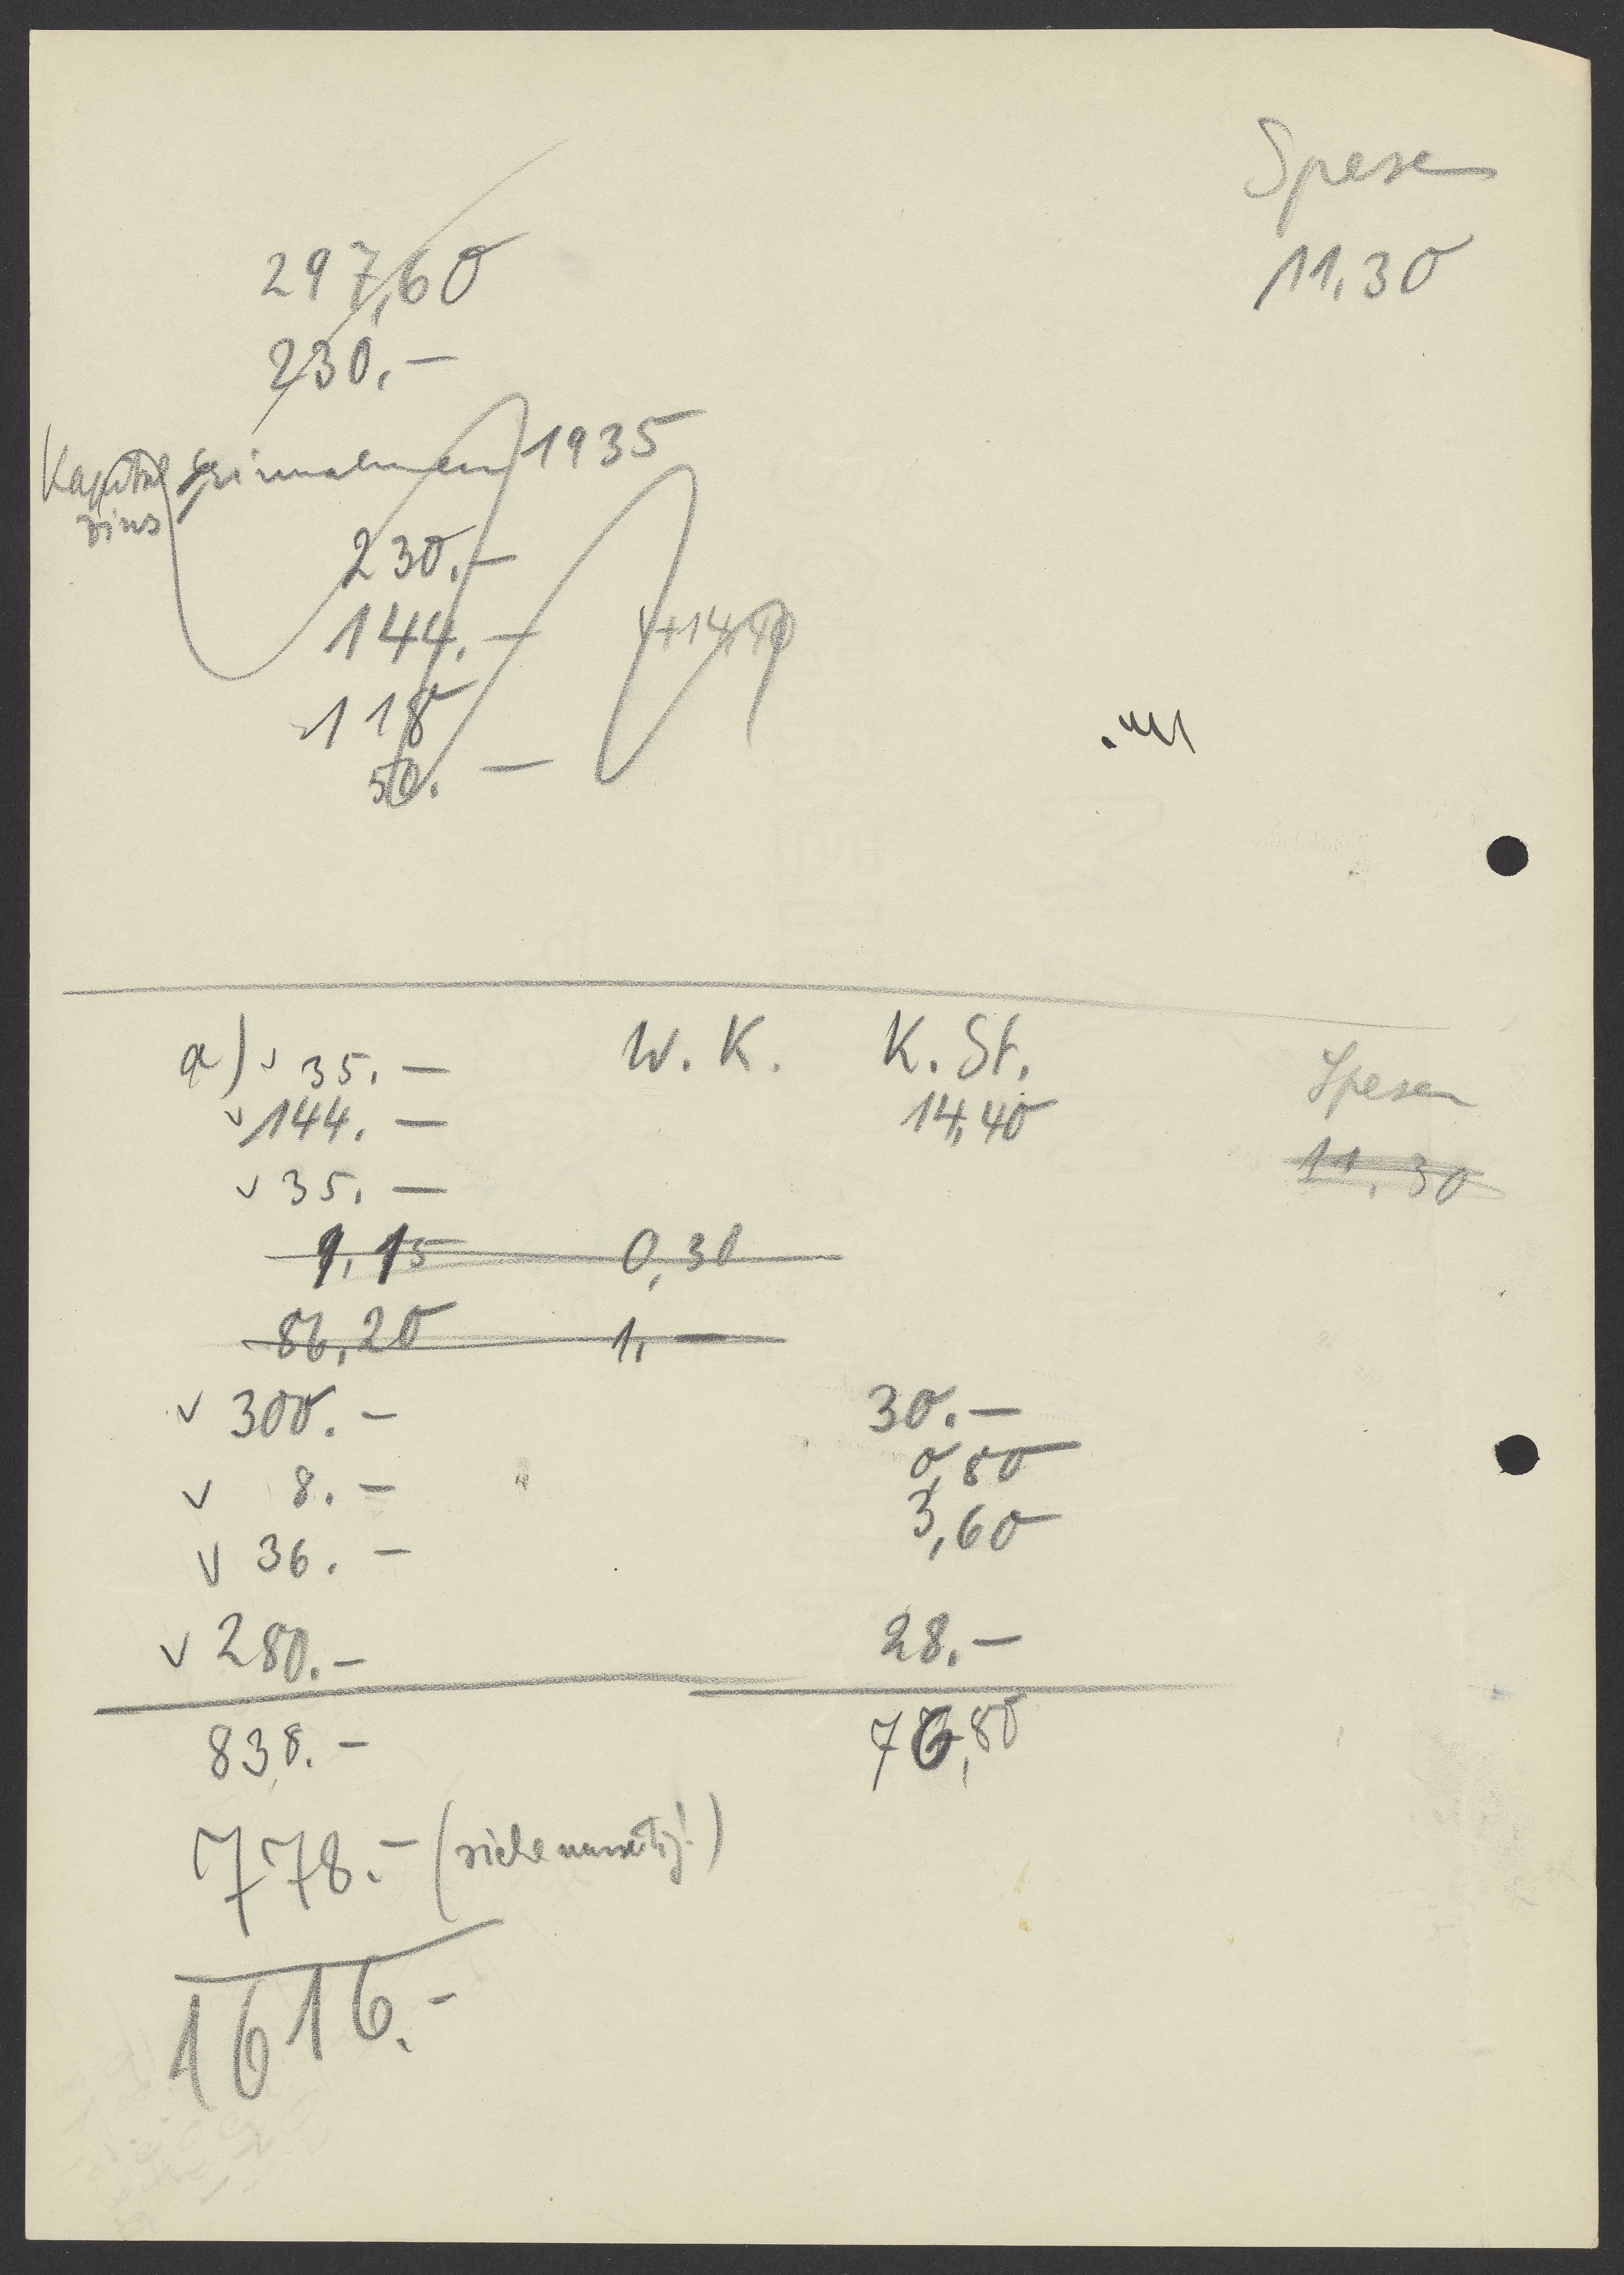 Spesen
11,30
297,60
230.-
Kapital Einnahmen 1935
zins
230.-
144.- +14,40
118
50.-
a) v 35.- W. K. K. St. Spesen
v 144.- 14,40 11,30
v 35.-
1,15 0,30
86,20 1,-
v 300.- 30.-
v 8.- 0,80
v 36.- 3,60
v 280.- 28.-
838.- 76,80
778.- (siehe umseitig!)
1616.-